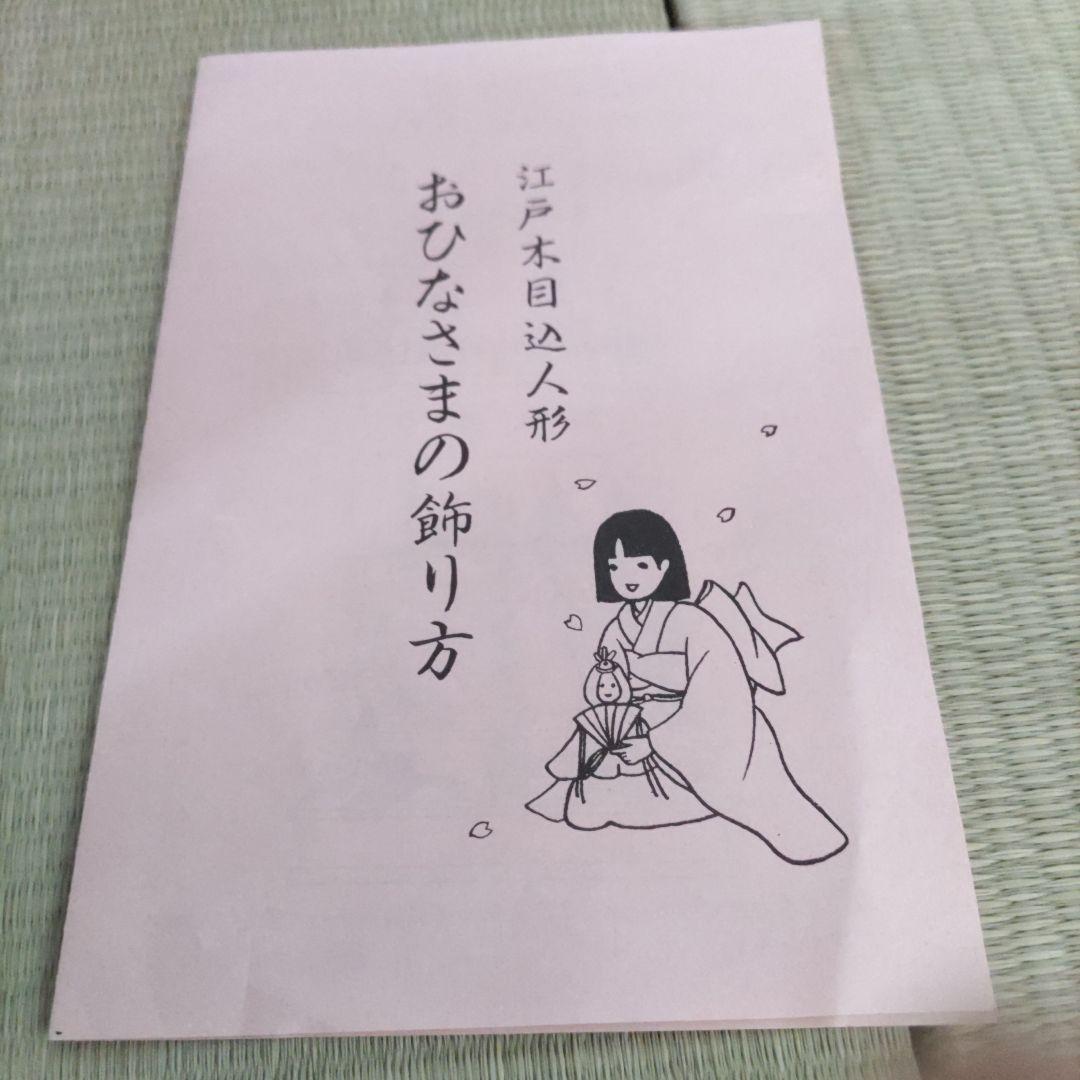 江戸木目込人形
おひなさまの飾り方